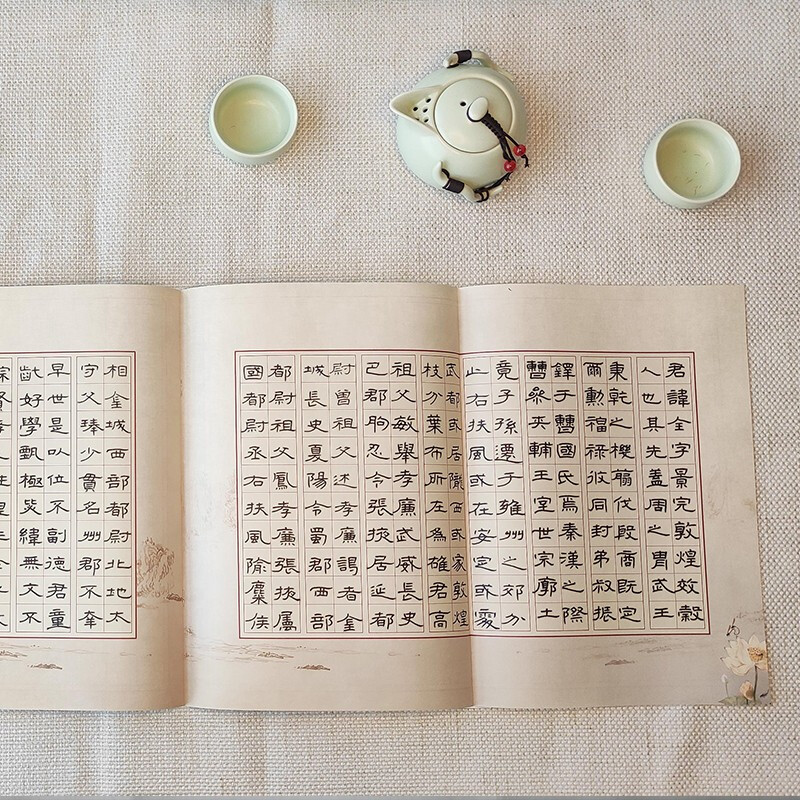 君諱全字景完敦煌效穀
人也其先蓋周之冑武王
秉乾之機翦伐殷商既定
爾勳福祿攸同封弟叔振
鐸于曹國氏焉秦漢之際
曹參夾輔王室世宗廓土
竟子孫遷于雍州之郊分
止右扶風或在安定或處
武都或居隴西或家敦煌
枝分葉布所在為雄君高
祖父敏舉孝廉武威長史
巴郡朐忍令張掖居延都
尉曾祖父述孝廉謁者金
城長史夏陽令蜀郡西部
都尉祖父鳳孝廉張掖屬
國都尉丞右扶風隃麋侯
相金城西部都尉北地太
守父琫少貫名州郡不幸
早世是以位不副德君童
齔好學甄極毖緯無文不